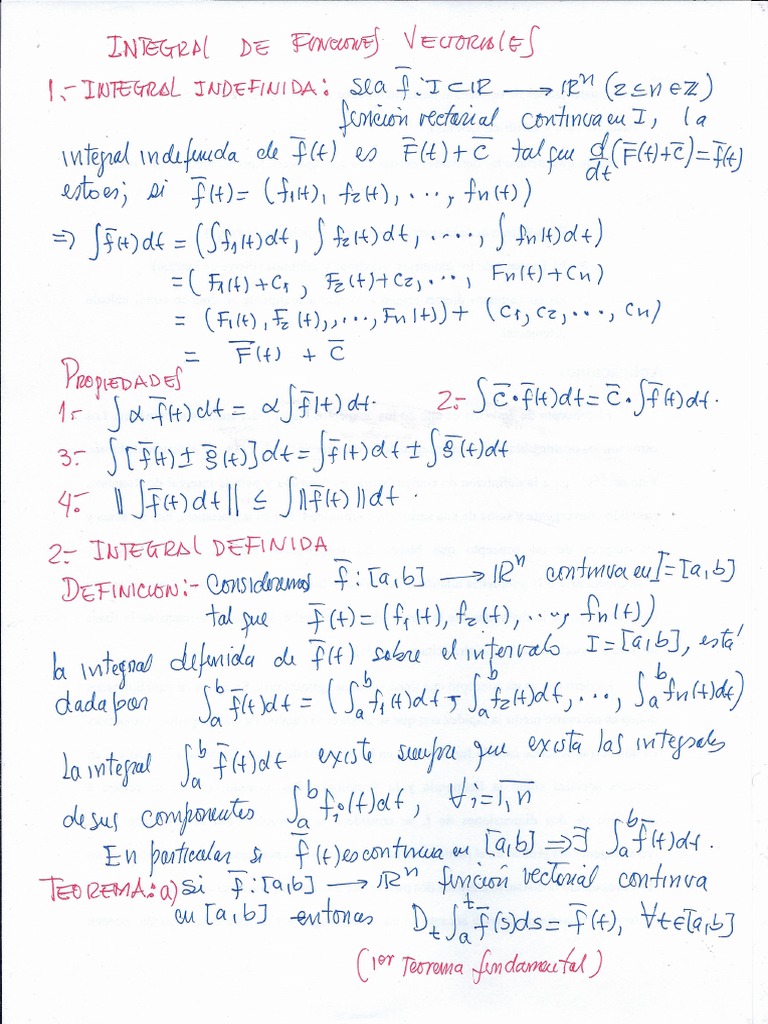 INTEGRAL DE FUNCIONES VECTORIALES
1.- INTEGRAL INDEFINIDA: sea f̄: I ⊂ ℝ ⟶ ℝⁿ (2 ≤ n ∈ ℤ)
función vectorial continua en I, la
integral indefinida de f̄(t) es F̄(t) + C̄ tal que d/dt (F̄(t) + C̄) = f̄(t)
esto es; si f̄(t) = (f₁(t), f₂(t), ..., fn(t))
⇒ ∫ f̄(t) dt = (∫ f₁(t) dt, ∫ f₂(t) dt, ....., ∫ fn(t) dt)
= (F₁(t) + C₁, F₂(t) + C₂, ..., Fn(t) + Cn)
= (F₁(t), F₂(t), ,..., Fn(t)) + (C₁, C₂, ..., Cn)
= F̄(t) + C̄
PROPIEDADES
1.- ∫ α f̄(t) dt = α ∫ f̄(t) dt. 2.- ∫ C̄ • f̄(t) dt = C̄ • ∫ f̄(t) dt.
3.- ∫ [f̄(t) ± ḡ(t)] dt = ∫ f̄(t) dt ± ∫ ḡ(t) dt
4.- ‖∫ f̄(t) dt‖ ≤ ∫ ‖f̄(t)‖ dt.
2.- INTEGRAL DEFINIDA
DEFINICION:- Consideremos f̄: [a,b] ⟶ ℝⁿ continua en I = [a,b]
tal que f̄(t) = (f₁(t), f₂(t), ..., fn(t))
la integral definida de f̄(t) sobre el intervalo I = [a,b], está
dada por ∫ₐᵇ f̄(t) dt = (∫ₐᵇ f₁(t) dt, ∫ₐᵇ f₂(t) dt, ..., ∫ₐᵇ fn(t) dt)
La integral ∫ₐᵇ f̄(t) dt existe siempre que exista las integrales
de sus componentes ∫ₐᵇ fᵢ(t) dt, ∀ i = 1,n̄
En particular si f̄(t) es continua en [a,b] ⇒ ∃ ∫ₐᵇ f̄(t) dt.
TEOREMA: a) Si f̄: [a,b] ⟶ ℝⁿ función vectorial continua
en [a,b] entonces Dₜ ∫ₐᵗ f̄(s) ds = f̄(t), ∀ t ∈ [a,b]
(1er Teorema fundamental)